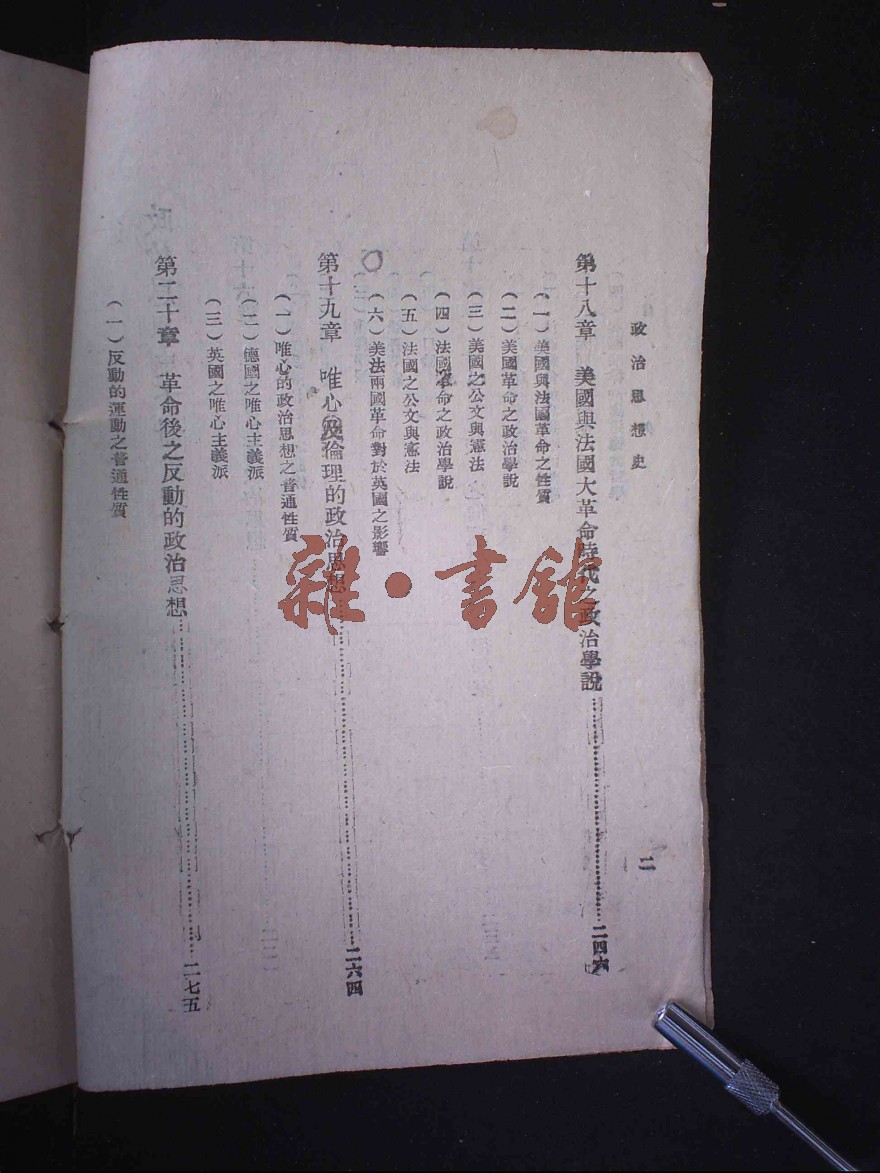 政治思想史
二
第十八章 美國與法國大革命時代之政治學說……二四六
(一)美國與法國革命之性質
(二)美國革命之政治學說
(三)美國之公文與憲法
(四)法國革命之政治學說
(五)法國之公文與憲法
(六)美法兩國革命對於英國之影響
第十九章 唯心及倫理的政治思想……二六四
(一)唯心的政治思想之普通性質
(二)德國之唯心主義派
(三)英國之唯心主義派
第二十章 革命後之反動的政治思想……二七五
(一)反動的運動之普通性質
雜·書館